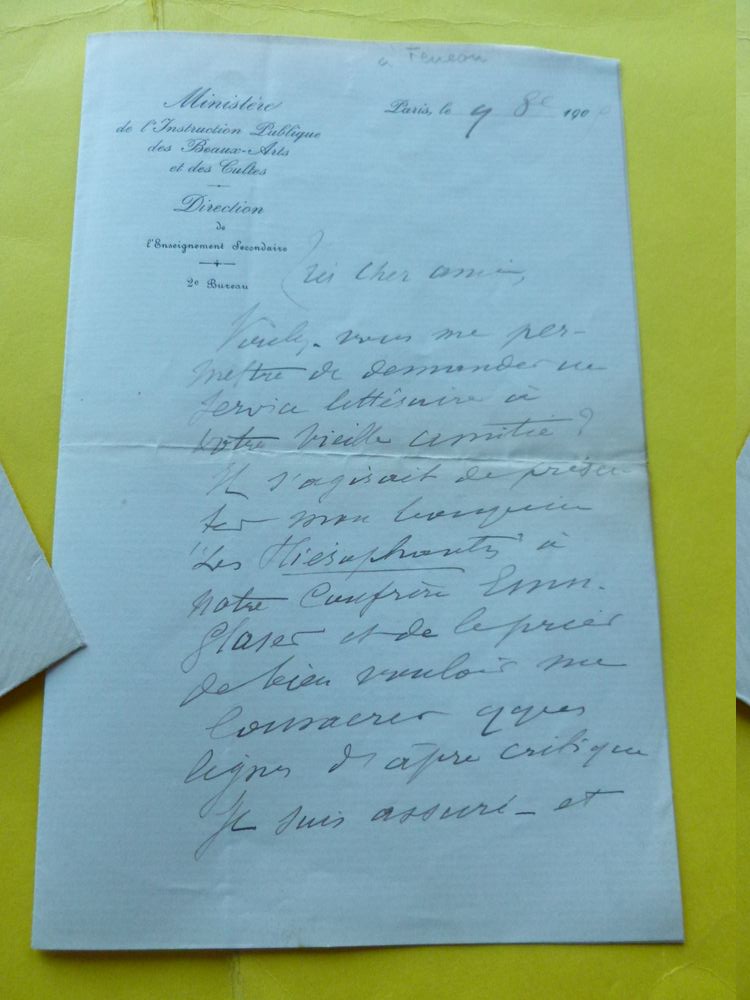 à Feneon
Ministère
de l'Instruction Publique
des Beaux-Arts
et des Cultes
Direction
de
l'Enseignement Secondaire
2e Bureau
Paris, le 9 8e 190
Très cher ami,
Voulez-vous me per-
mettre de demander un
service littéraire à
votre vieille amitié?
Il s'agirait de présen
ter mon bouquin
"Les Hiérophantes" à
notre Confrère Emm.
Glaser et de le prier
de bien vouloir me
consacrer qques
lignes d'âpre critique
Je suis assuré - et